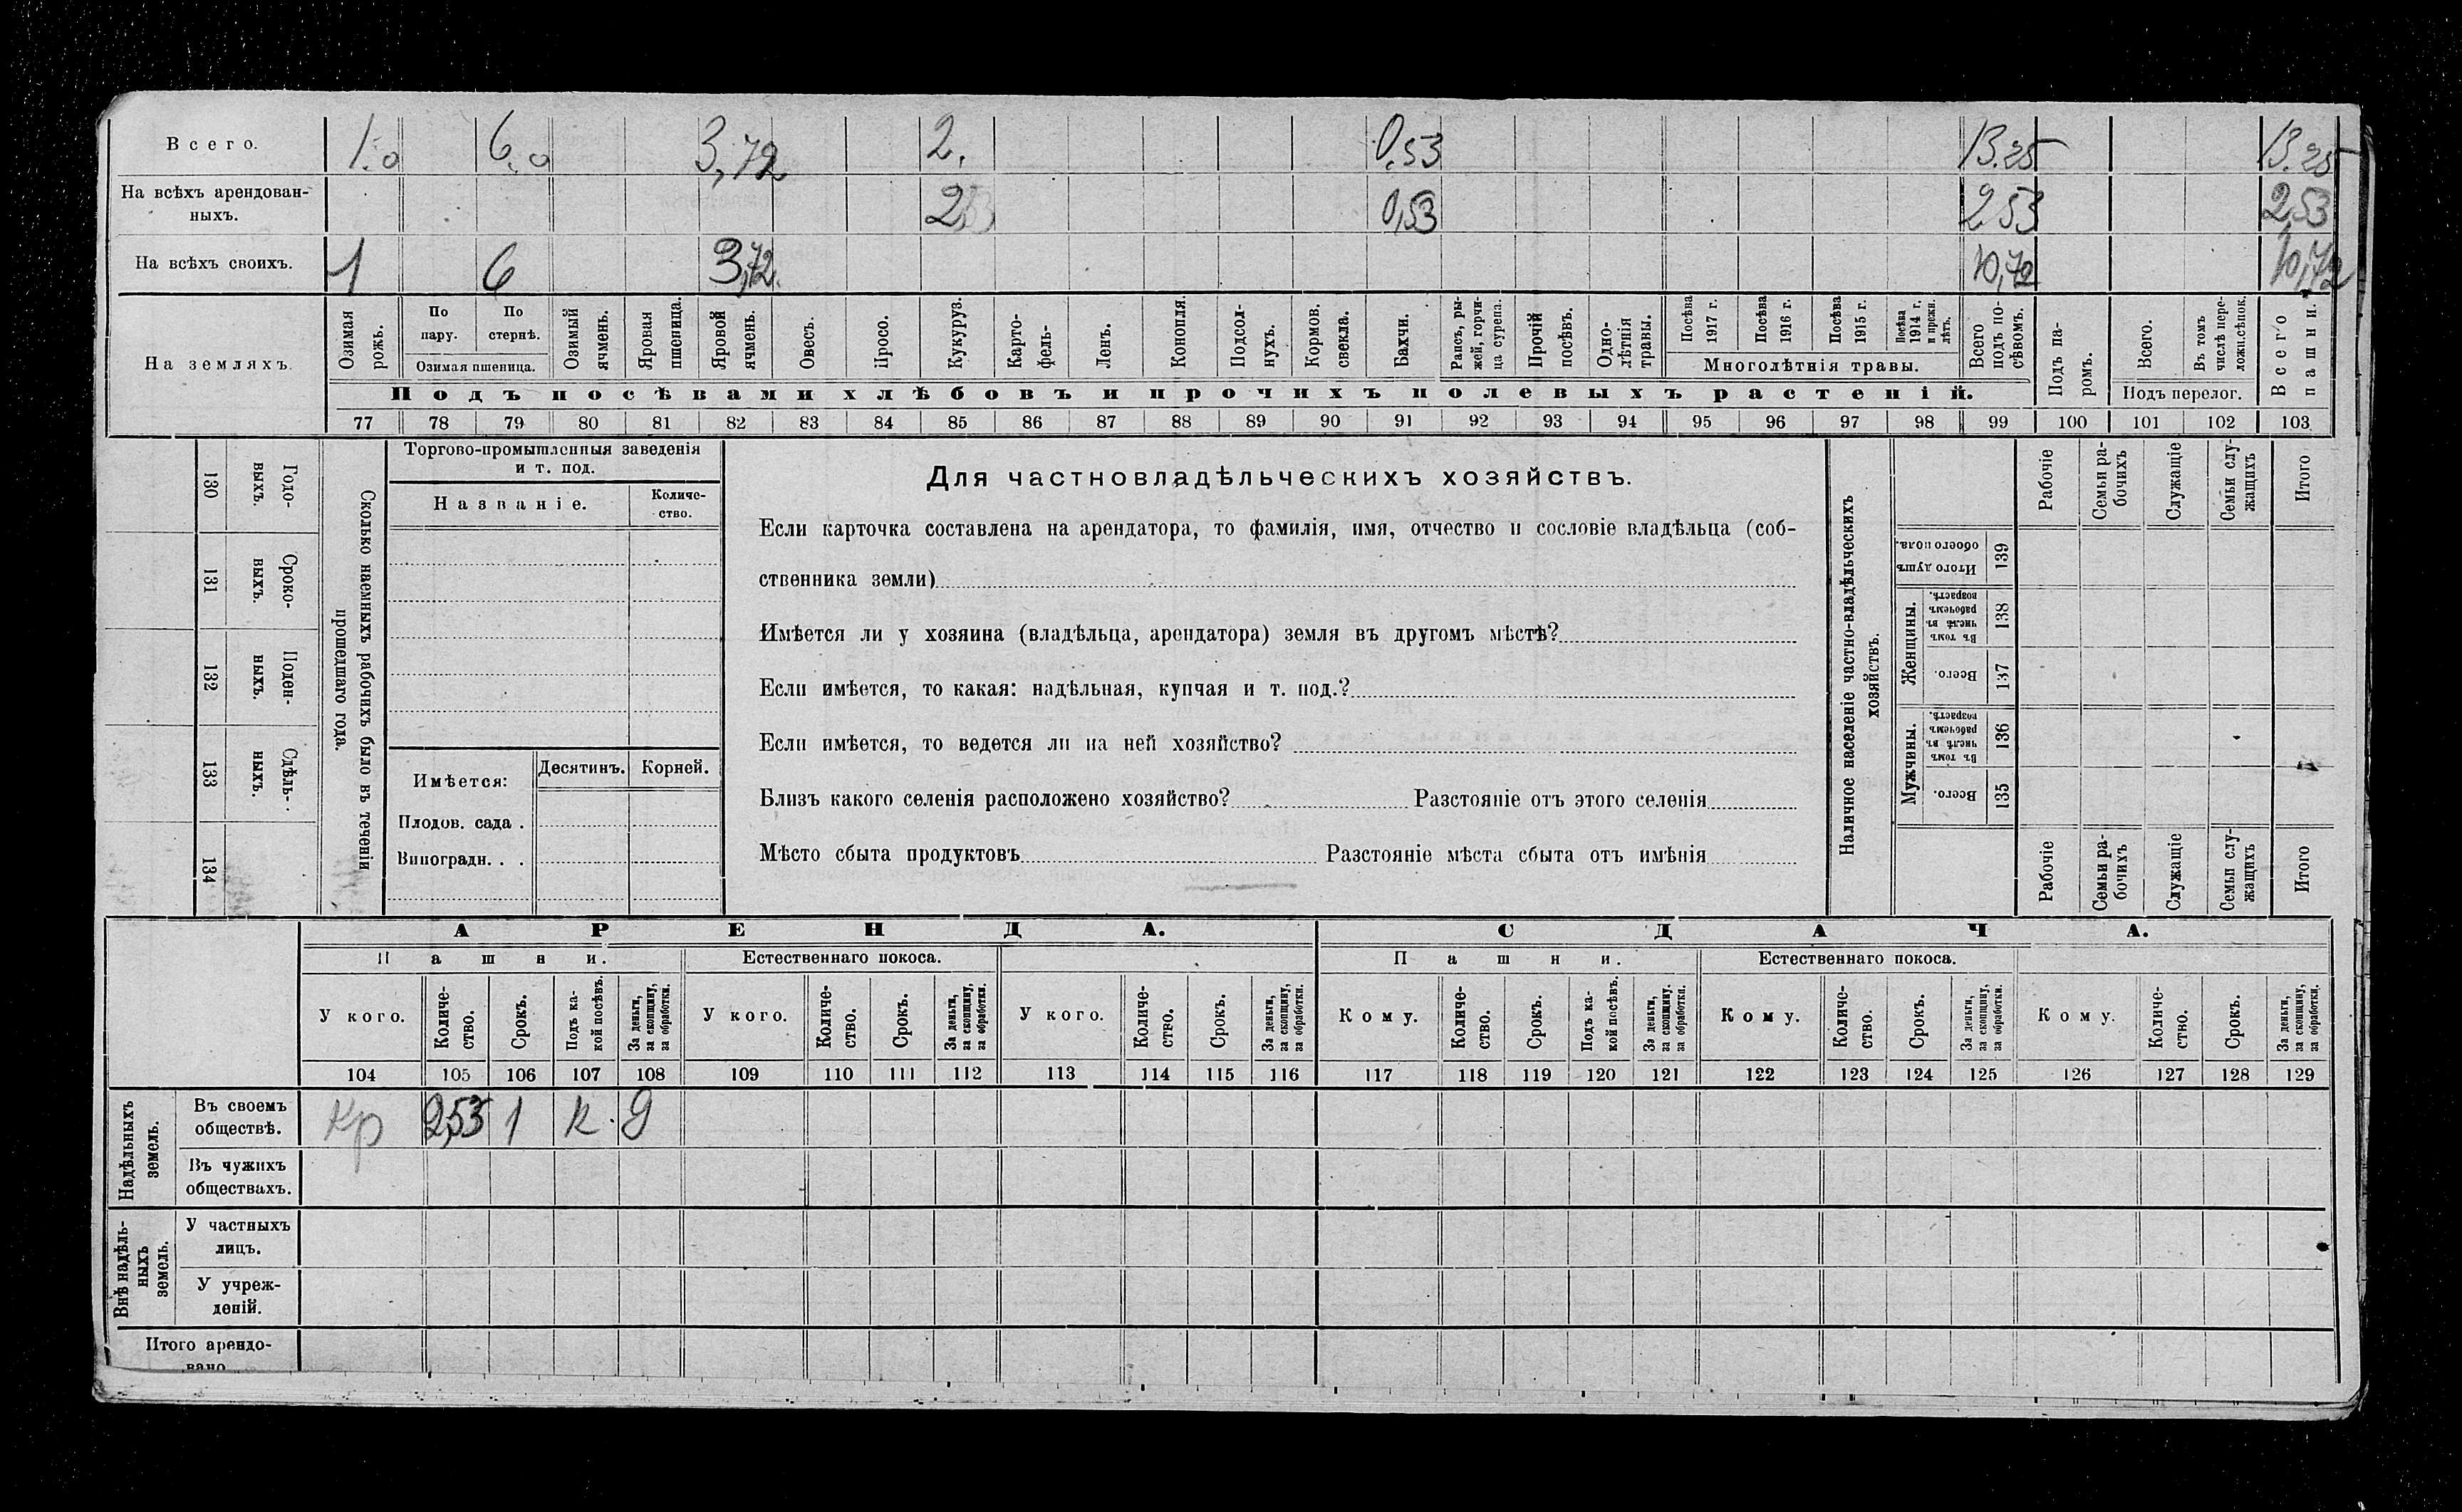 Всего. 1.0 6.0 3,72 2. 0,53 13.25 13.25
На всѣхъ арендован-
ныхъ. 2 0,53 2,53 2,53
На всѣхъ своихъ. 1 6 3,72. 10,72 10,72
На земляхъ.
Озимая рожь.
По пару.
По стернѣ.
Озимая пшеница.
Озимый ячмень.
Яровая пшеница.
Яровой ячмень.
Овесъ.
Просо.
Кукуруз.
Карто-
фель-
Ленъ.
Конопля.
Подсол-
нухъ.
Кормов. свекла.
Бахчи.
Рапсъ, ры-
жей, горчи-
ца сурепа.
Прочій посѣвъ.
Одно-
лѣтнія травы.
Посѣва 1917 г.
Посѣва 1916 г.
Посѣва 1915 г.
Посѣва 1914 г. и прежн. лѣтъ.
Многолѣтнія травы.
Всего подъ по-
сѣвомъ.
Подъ па-
ромъ.
Всего.
Въ томъ числѣ пере-
ложн.сѣнок.
Подъ перелог.
Всего пашни.
Подъ посѣвами хлѣбовъ и прочихъ полевыхъ растеній.
77 78 79 80 81 82 83 84 85 86 87 88 89 90 91 92 93 94 95 96 97 98 99 100 101 102 103
Сколько наемныхъ рабочихъ было въ теченіи
прошедшаго года.
130 Годо-
выхъ.
131 Сроко-
ныхъ.
132 Поден-
ныхъ.
133 Сдѣль-
ныхъ.
134
Торгово-промышленныя заведенія
и т. под.
Названіе.
Количе-
ство.
Имѣется:
Десятинъ. Корней.
Плодов. сада .
Виноградн. . .
Для частновладѣльческихъ хозяйствъ.
Если карточка составлена на арендатора, то фамилія, имя, отчество и сословіе владѣльца (соб-
ственника земли)
Имѣется ли у хозяина (владѣльца, арендатора) земля въ другомъ мѣстѣ?
Если имѣется, то какая: надѣльная, купчая и т. под.?
Если имѣется, то ведется ли на ней хозяйство?
Близъ какого селенія расположено хозяйство? Разстояніе отъ этого селенія
Мѣсто сбыта продуктовъ Разстояніе мѣста сбыта отъ имѣнія
Наличное населеніе частно-владѣльческихъ
хозяйствъ.
Рабочіе
Семьи ра-
бочихъ
Служащіе
Семьи слу-
жащихъ
Итого
Итого душъ обоего пола. 139
Женщины.
Въ томъ числѣ въ рабочемъ возрастѣ. 138
Всего. 137
Мужчины.
Въ томъ числѣ въ рабочемъ возрастѣ. 136
Всего. 135
Рабочіе
Семьи ра-
бочихъ
Служащіе
Семьи слу-
жащихъ
Итого
АРЕНДА. СДАЧА.
Пашни. Естественнаго покоса. Пашни. Естественнаго покоса.
У кого.
Количе-
ство.
Срокъ.
Подъ ка-
кой посѣвъ.
За деньги, за скопщину, за обработки.
У кого.
Количе-
ство.
Срокъ.
За деньги, за скопщину, за обработки.
У кого.
Количе-
ство.
Срокъ.
За деньги, за скопщину, за обработки.
Кому.
Количе-
ство.
Срокъ.
Подъ ка-
кой посѣвъ.
За деньги, за скопщину. за обработки.
Кому.
Количе-
ство.
Срокъ.
За деньги, за скопщину, за обработки.
Кому.
Количе-
ство.
Срокъ.
За деньги, за скопщину, за обработки.
104 105 106 107 108 109 110 111 112 113 114 115 116 117 118 119 120 121 122 123 124 125 126 127 128 129
Надѣльныхъ земель.
Въ своемъ
обществѣ. Кр 2,53 1 к. д
Въ чужихъ
обществахъ.
Внѣ надѣль-
ныхъ земель.
У частныхъ
лицъ.
У учреж-
деній.
Итого арендо-
вано